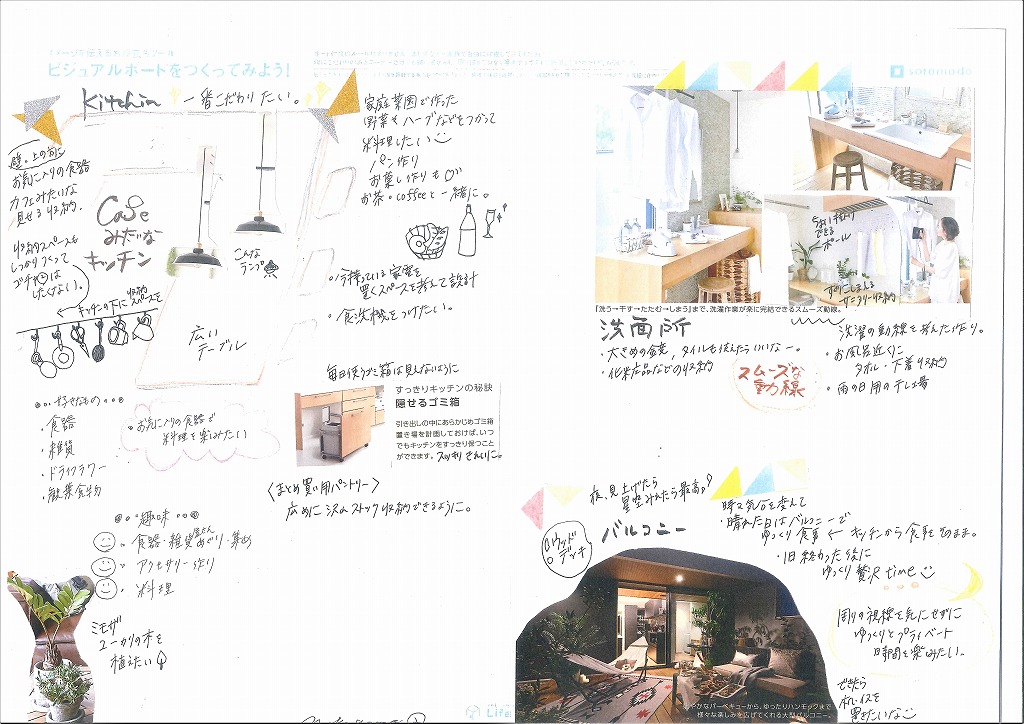 ビジュアルボードをつくってみよう！
sotomado
Kitchin 一番こだわりたい。
壁の上の方に
お気に入りの食器
カフェみたいな
見せる収納。
収納スペースも
しっかりつくって
ゴチャゴチャは
したくない。
Cafe
みたいな
キッチン
キッチンの下に収納スペースを
こんな
ランプ
広い
テーブル
家庭菜園で作った
野菜やハーブなどをつかって
料理したい
パン作り
お菓子作りも
お茶・coffeeと一緒に。
・今持っている家電を
置くスペースを考えて設計
・食洗機をつけたい。
毎日使うゴミ箱は見えないように
すっきりキッチンの秘訣
隠せるゴミ箱
引き出しの中にあらかじめゴミ箱
置き場を計画しておけば、いつ
でもキッチンをすっきり保つこと
ができます。スッキリきれいに。
〈まとめ買い用パントリー〉
広めに沢山ストック収納できるように。
好きなもの
・食器
・雑貨
・ドライフラワー
・観葉食物
・お気に入りの食器で
料理を楽しみたい
趣味
・食器・雑貨屋さんめぐり・集め
・アクセサリー作り
・料理
ミモザ
ユーカリの木を
植えたい
ちょい干しり
できる
ポール
すぐにしまえる
サニタリー収納
「洗う→干す→たたむ→しまう」まで、洗濯作業が楽に完結できるスムーズ動線。
洗面所
・大きめの鏡、タイルも使えたらいいなー。
・化粧品などの収納
スムーズな
動線
洗濯の動線を考えた作り。
・お風呂近くに
タオル・下着収納
・雨の日用の干し場
夜、見上げたら
星空みれたら最高♪
バルコニー
ウッド
デッキ
時々気分を変えて
・晴れた日はバルコニーで
ゆっくり食事 ← キッチンから食事をそのまま。
・1日終わった後に
ゆっくり贅沢time
周りの視線を気にせずに
ゆっくりとプライベート
時間を楽しみたい。
やかなバーベキューから、ゆったりハンモックまで
様々な楽しみを広げてくれる大型バルコニー。
できたら
木のイスを
置きたいな
Life